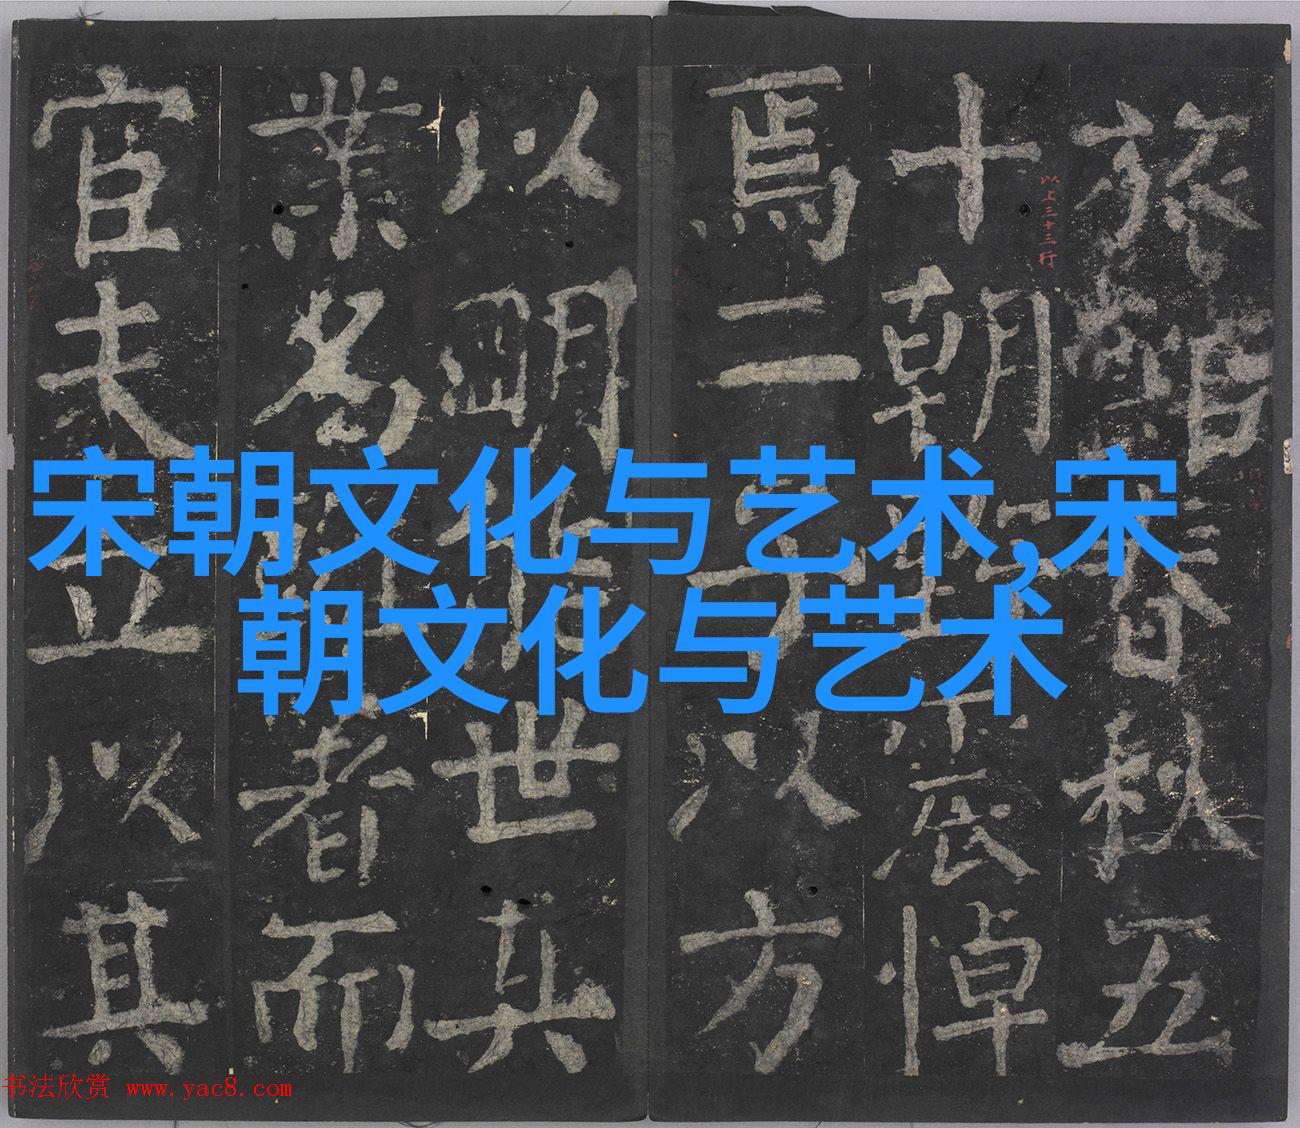 宋朝文化与艺术,宋
朝文化与艺术
旅館春秋五
十朝悼
焉二以方
以明世其
業為者而
官夫立以其
以上三十三行
书法欣赏 www.yac8.com